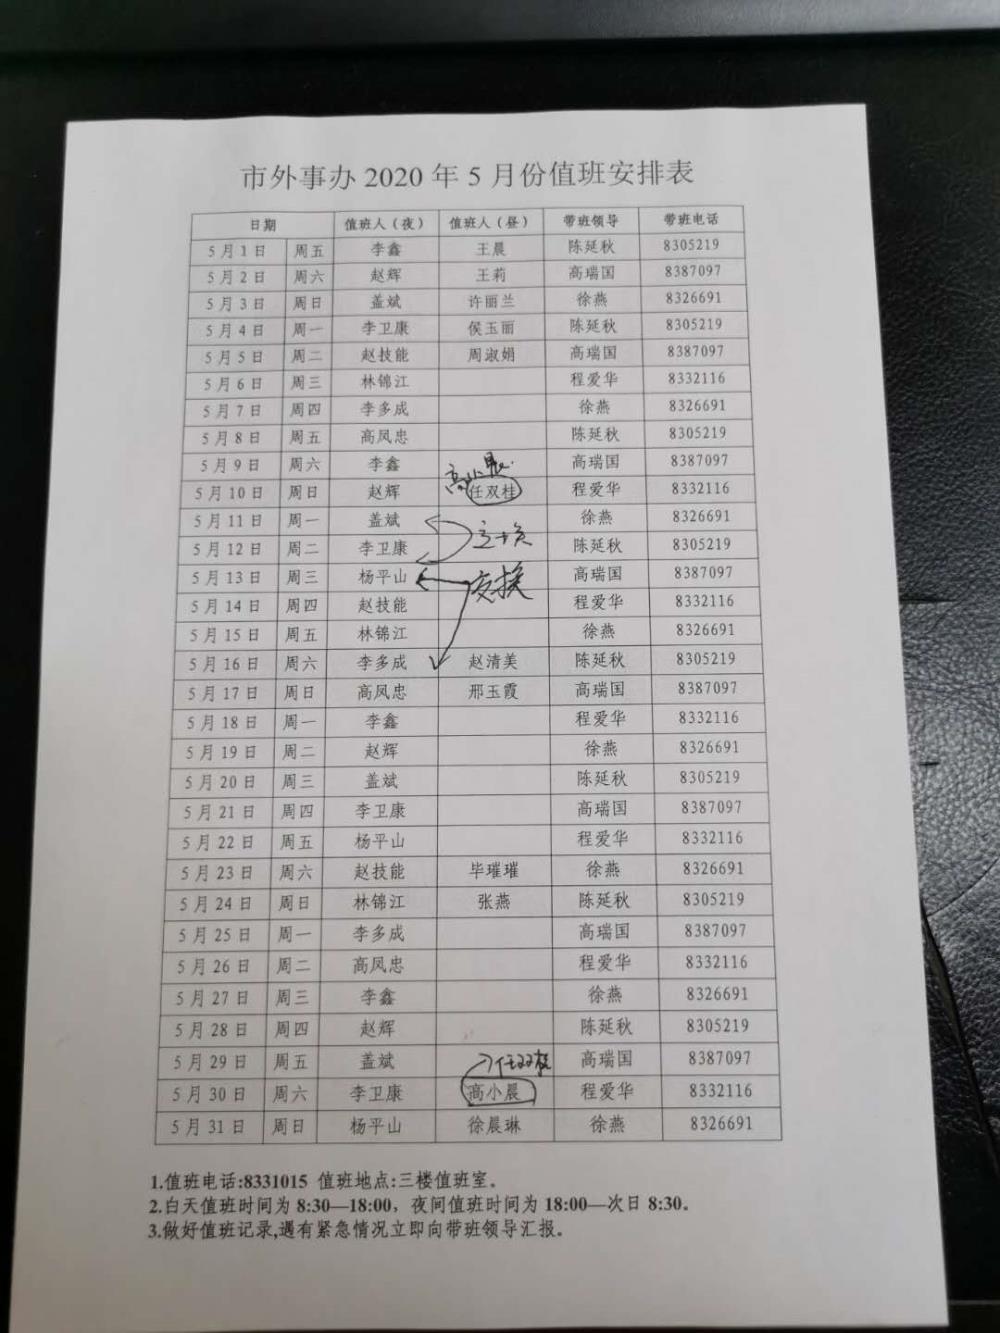 市外事办 2020 年 5 月份值班安排表
日期 值班人（夜） 值班人（昼） 带班领导 带班电话
5 月 1 日 周五 李鑫 王晨 陈延秋 8305219
5 月 2 日 周六 赵辉 王莉 高瑞国 8387097
5 月 3 日 周日 盖斌 许丽兰 徐燕 8326691
5 月 4 日 周一 李卫康 侯玉丽 陈延秋 8305219
5 月 5 日 周二 赵技能 周淑娟 高瑞国 8387097
5 月 6 日 周三 林锦江 程爱华 8332116
5 月 7 日 周四 李多成 徐燕 8326691
5 月 8 日 周五 高凤忠 陈延秋 8305219
5 月 9 日 周六 李鑫 高瑞国 8387097
高小晨
5 月 10 日 周日 赵辉 任双桂 程爱华 8332116
5 月 11 日 周一 盖斌 徐燕 8326691
互换
5 月 12 日 周二 李卫康 陈延秋 8305219
5 月 13 日 周三 杨平山 高瑞国 8387097
交换
5 月 14 日 周四 赵技能 程爱华 8332116
5 月 15 日 周五 林锦江 徐燕 8326691
5 月 16 日 周六 李多成 赵清美 陈延秋 8305219
5 月 17 日 周日 高凤忠 邢玉霞 高瑞国 8387097
5 月 18 日 周一 李鑫 程爱华 8332116
5 月 19 日 周二 赵辉 徐燕 8326691
5 月 20 日 周三 盖斌 陈延秋 8305219
5 月 21 日 周四 李卫康 高瑞国 8387097
5 月 22 日 周五 杨平山 程爱华 8332116
5 月 23 日 周六 赵技能 毕璀璀 徐燕 8326691
5 月 24 日 周日 林锦江 张燕 陈延秋 8305219
5 月 25 日 周一 李多成 高瑞国 8387097
5 月 26 日 周二 高凤忠 程爱华 8332116
5 月 27 日 周三 李鑫 徐燕 8326691
5 月 28 日 周四 赵辉 陈延秋 8305219
5 月 29 日 周五 盖斌 高瑞国 8387097
任双桂
5 月 30 日 周六 李卫康 高小晨 程爱华 8332116
5 月 31 日 周日 杨平山 徐晨琳 徐燕 8326691
1.值班电话:8331015 值班地点:三楼值班室。
2.白天值班时间为 8:30—18:00，夜间值班时间为 18:00—次日 8:30。
3.做好值班记录,遇有紧急情况立即向带班领导汇报。